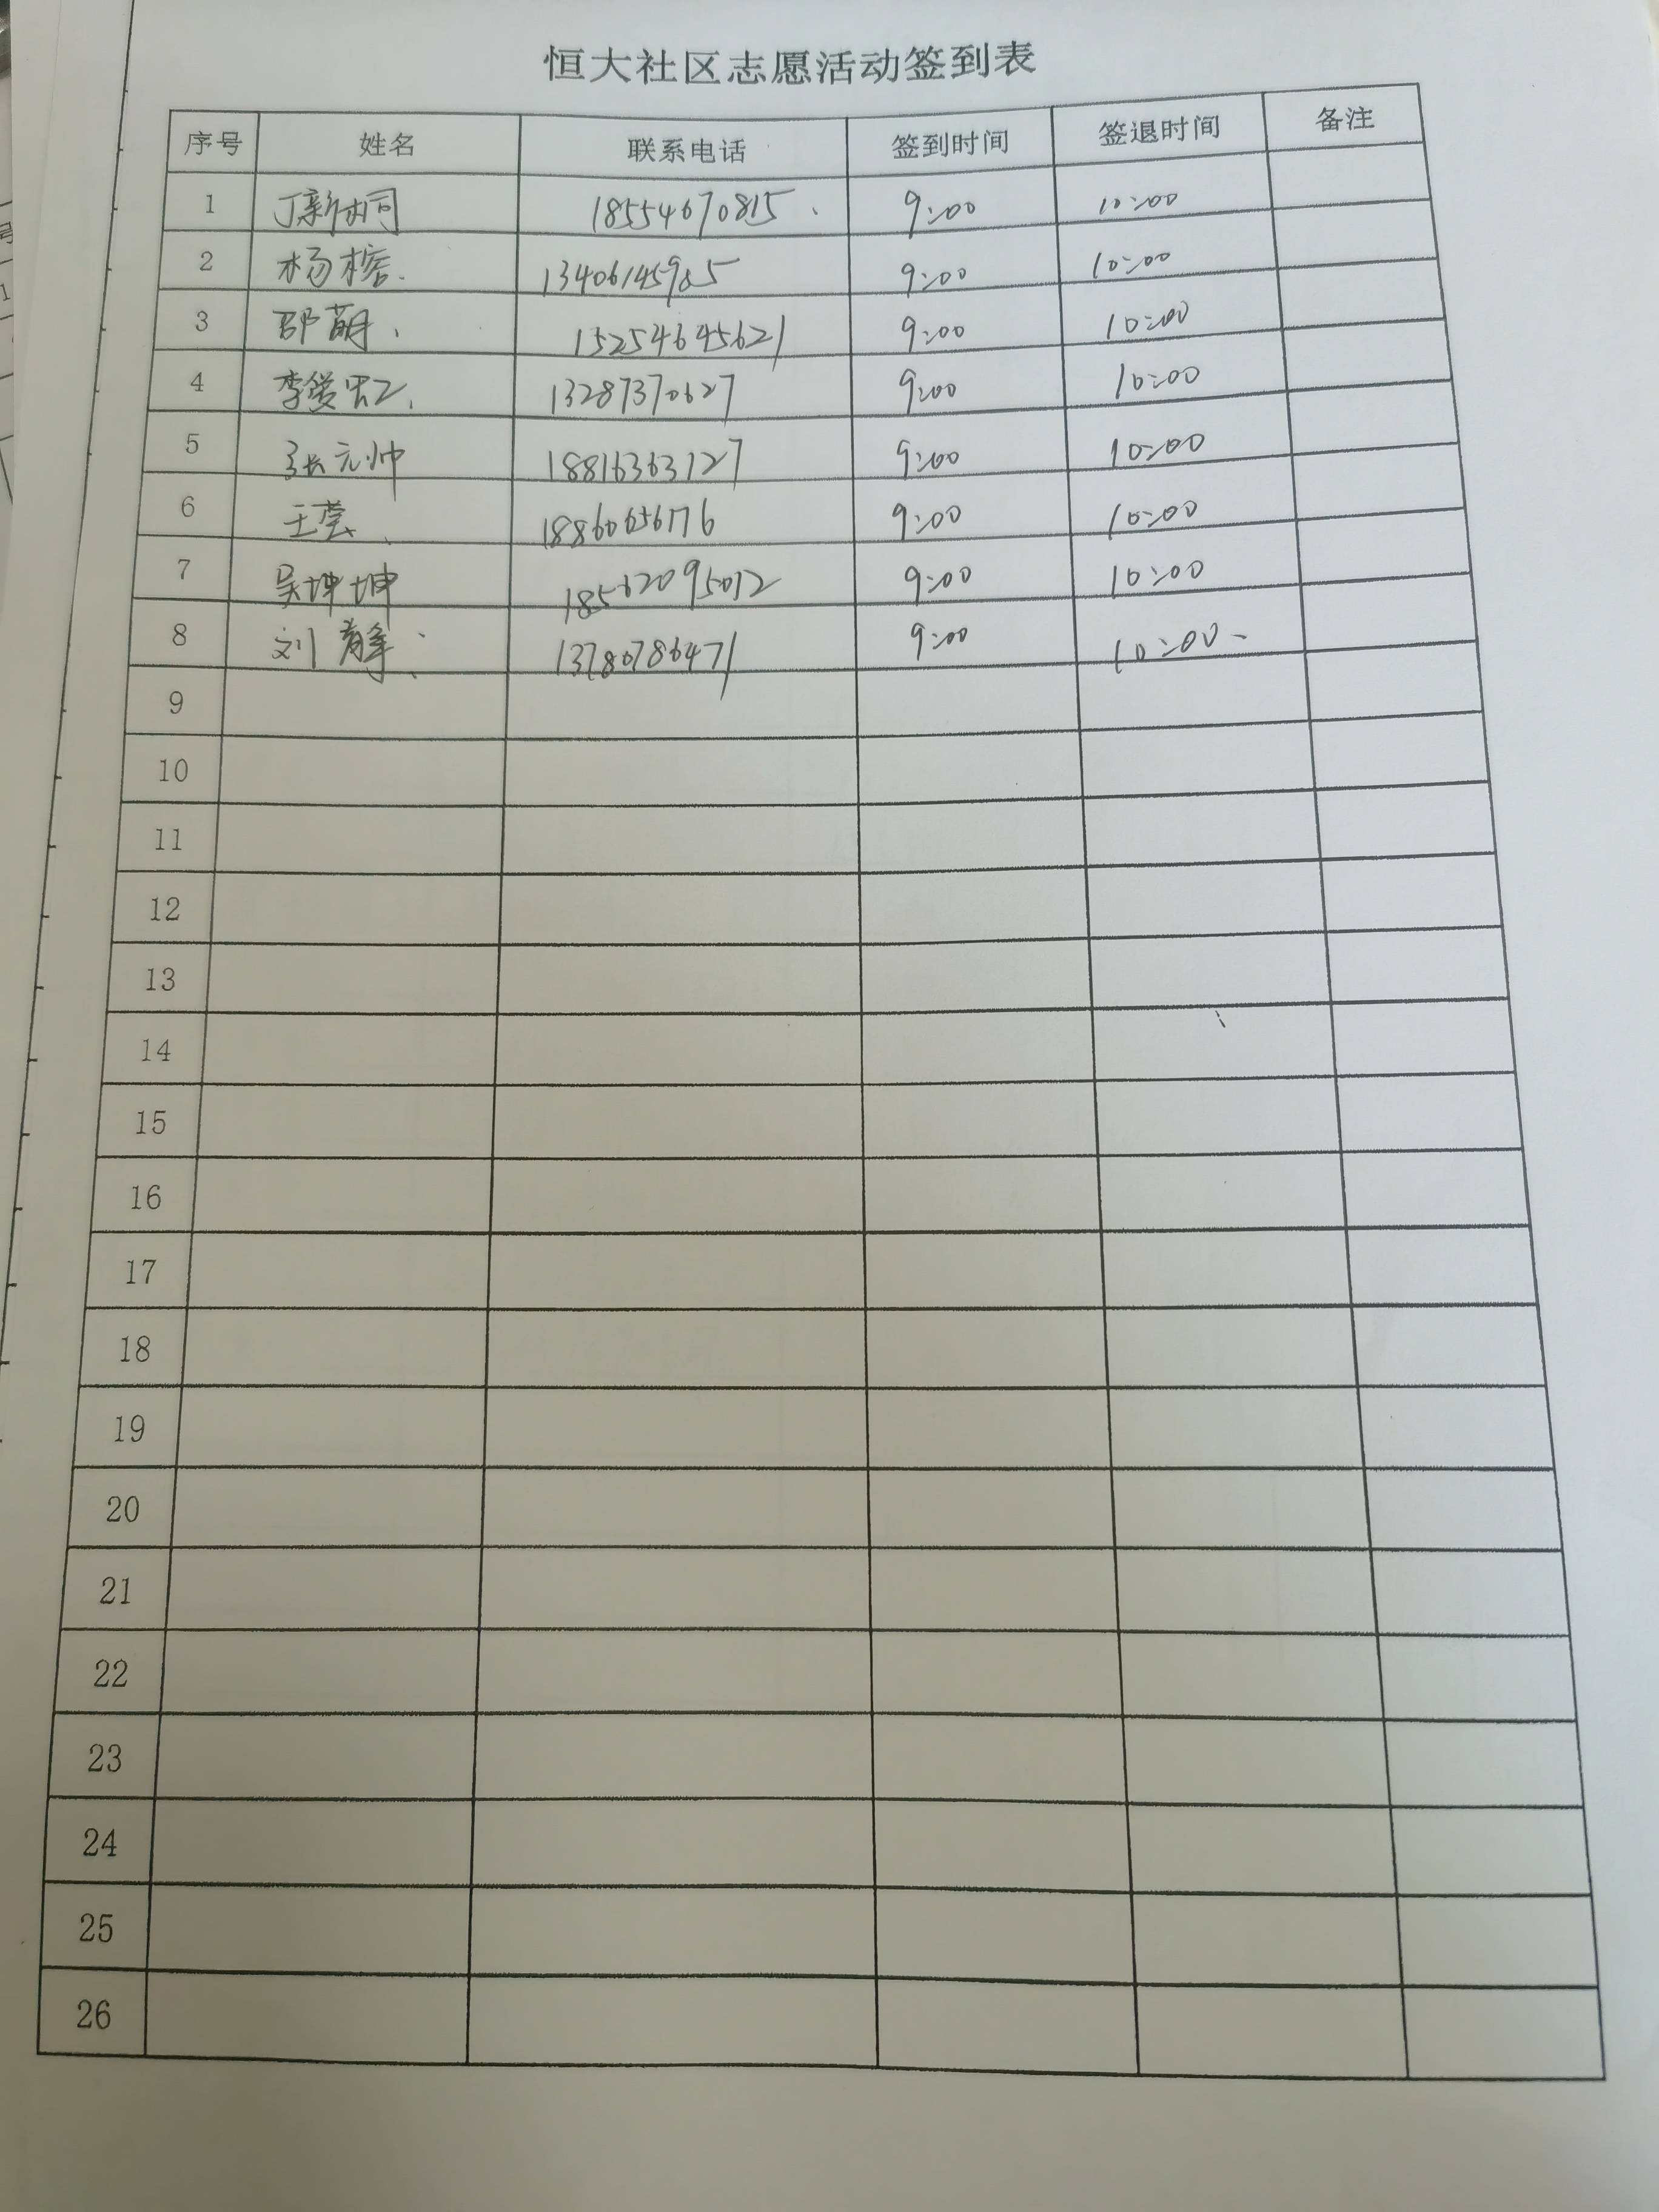 恒大社区志愿活动签到表
序号 姓名 联系电话 签到时间 签退时间 备注
1 丁新桐 18554670815 9:00 10:00
2 杨榕 13406145985 9:00 10:00
3 邵萌 15254645621 9:00 10:00
4 李俊 13287370627 9:00 10:00
5 张元帅 18816363127 9:00 10:00
6 王莹 18860656176 9:00 10:00
7 吴坤坤 18562095012 9:00 10:00
8 刘静 13780786471 9:00 10:00
9
10
11
12
13
14
15
16
17
18
19
20
21
22
23
24
25
26